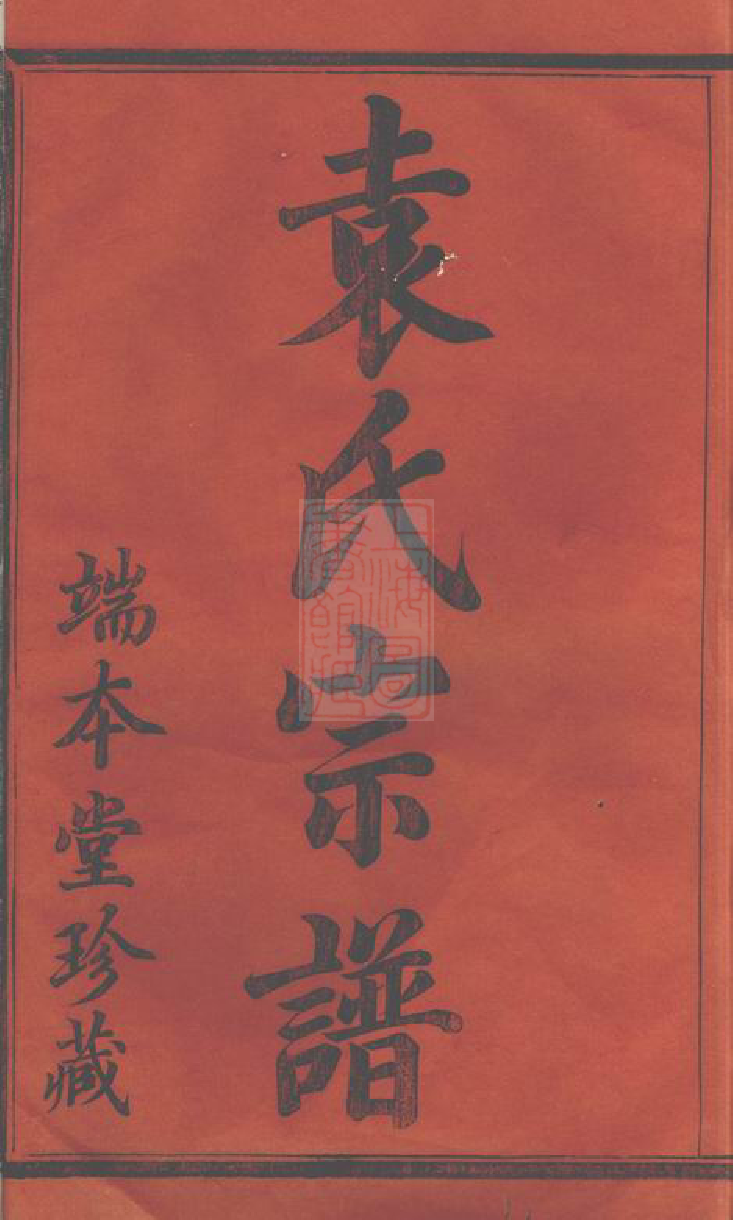 袁氏宗譜
端本堂珍藏